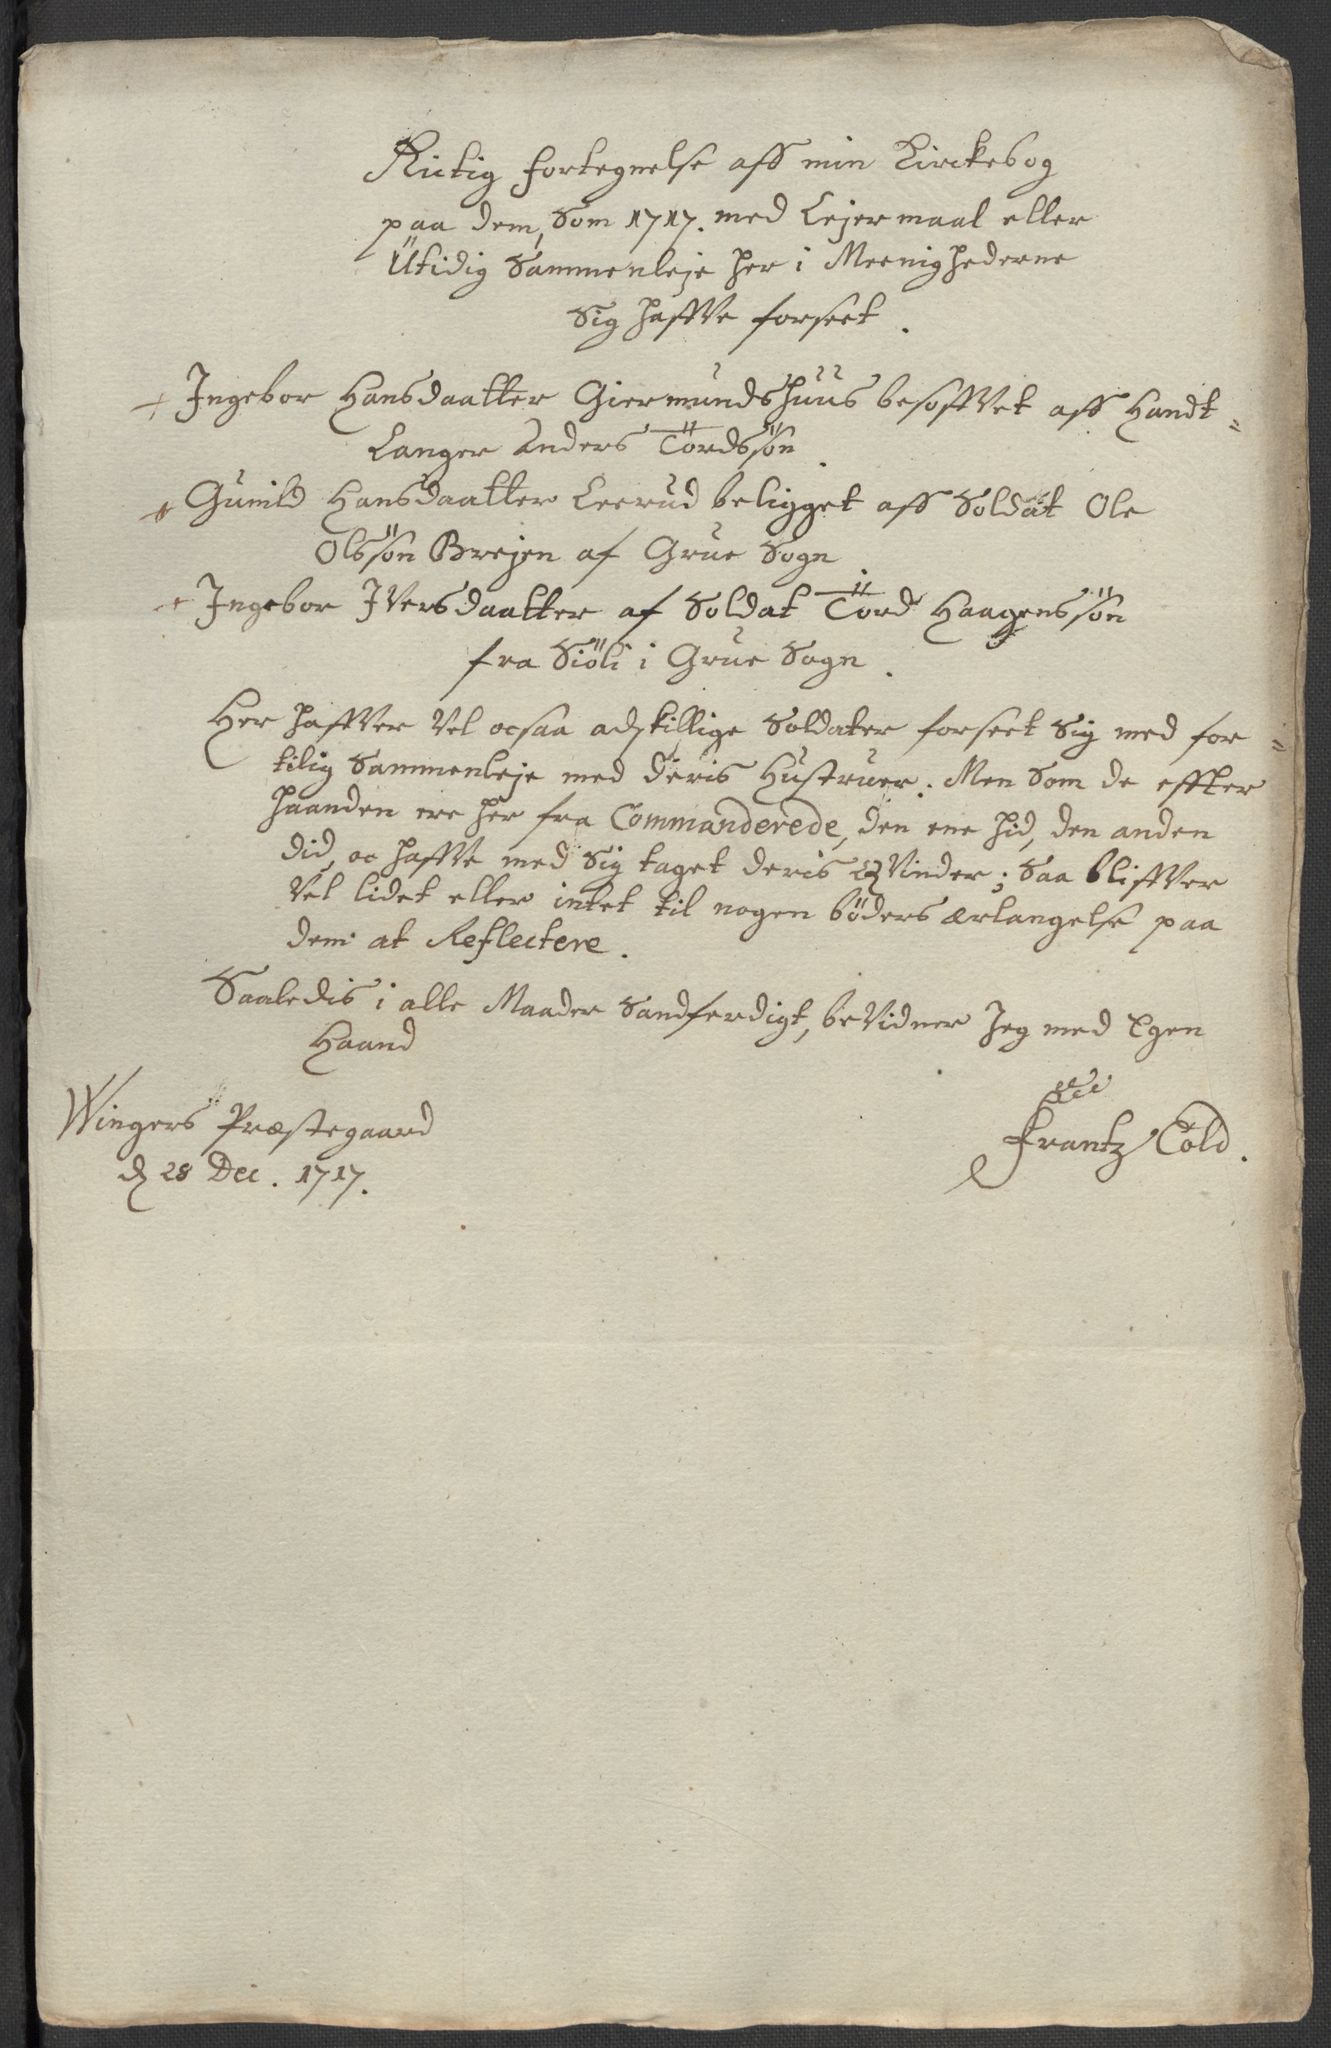 Rictig fortegnelse aff min Kirckebog
paa dem, Som 1717. med Lejermaal eller
Utidig Sammenleje her i Meenighederne
Sig haffve forseet.
+ Ingebor Hansdaatter Giermundshuus besoffvet aff Handt=
Langer Anders Tördssön.
+ Gunild Hansdaatter Leerud beligget aff Soldat Ole
Olssön Brejen af Grue Sogn
+ Ingebor IVersdaatter af Soldat Törd Haagenssön
fra Siöli i Grue Sogn.
Her haffVer Vel ocsaa adskillige Soldater forseet Sig med for=
tilig Sammenleje med deris Hustruer: Men Som de effter
haanden ere her fra Commanderede, den ene hid, den anden
did, oc haffVe med Sig taget deris QVinder; Saa bliffVer
Vel lidet eller intet til nogen böders ærlangelse paa
dem at Reflectere.
Saaledis i alle Maader Sandferdigt, beVidner Jeg med Egen
Haand
Wingers Præstegaard
d 28 Dec. 1717.
Frantz Cold.